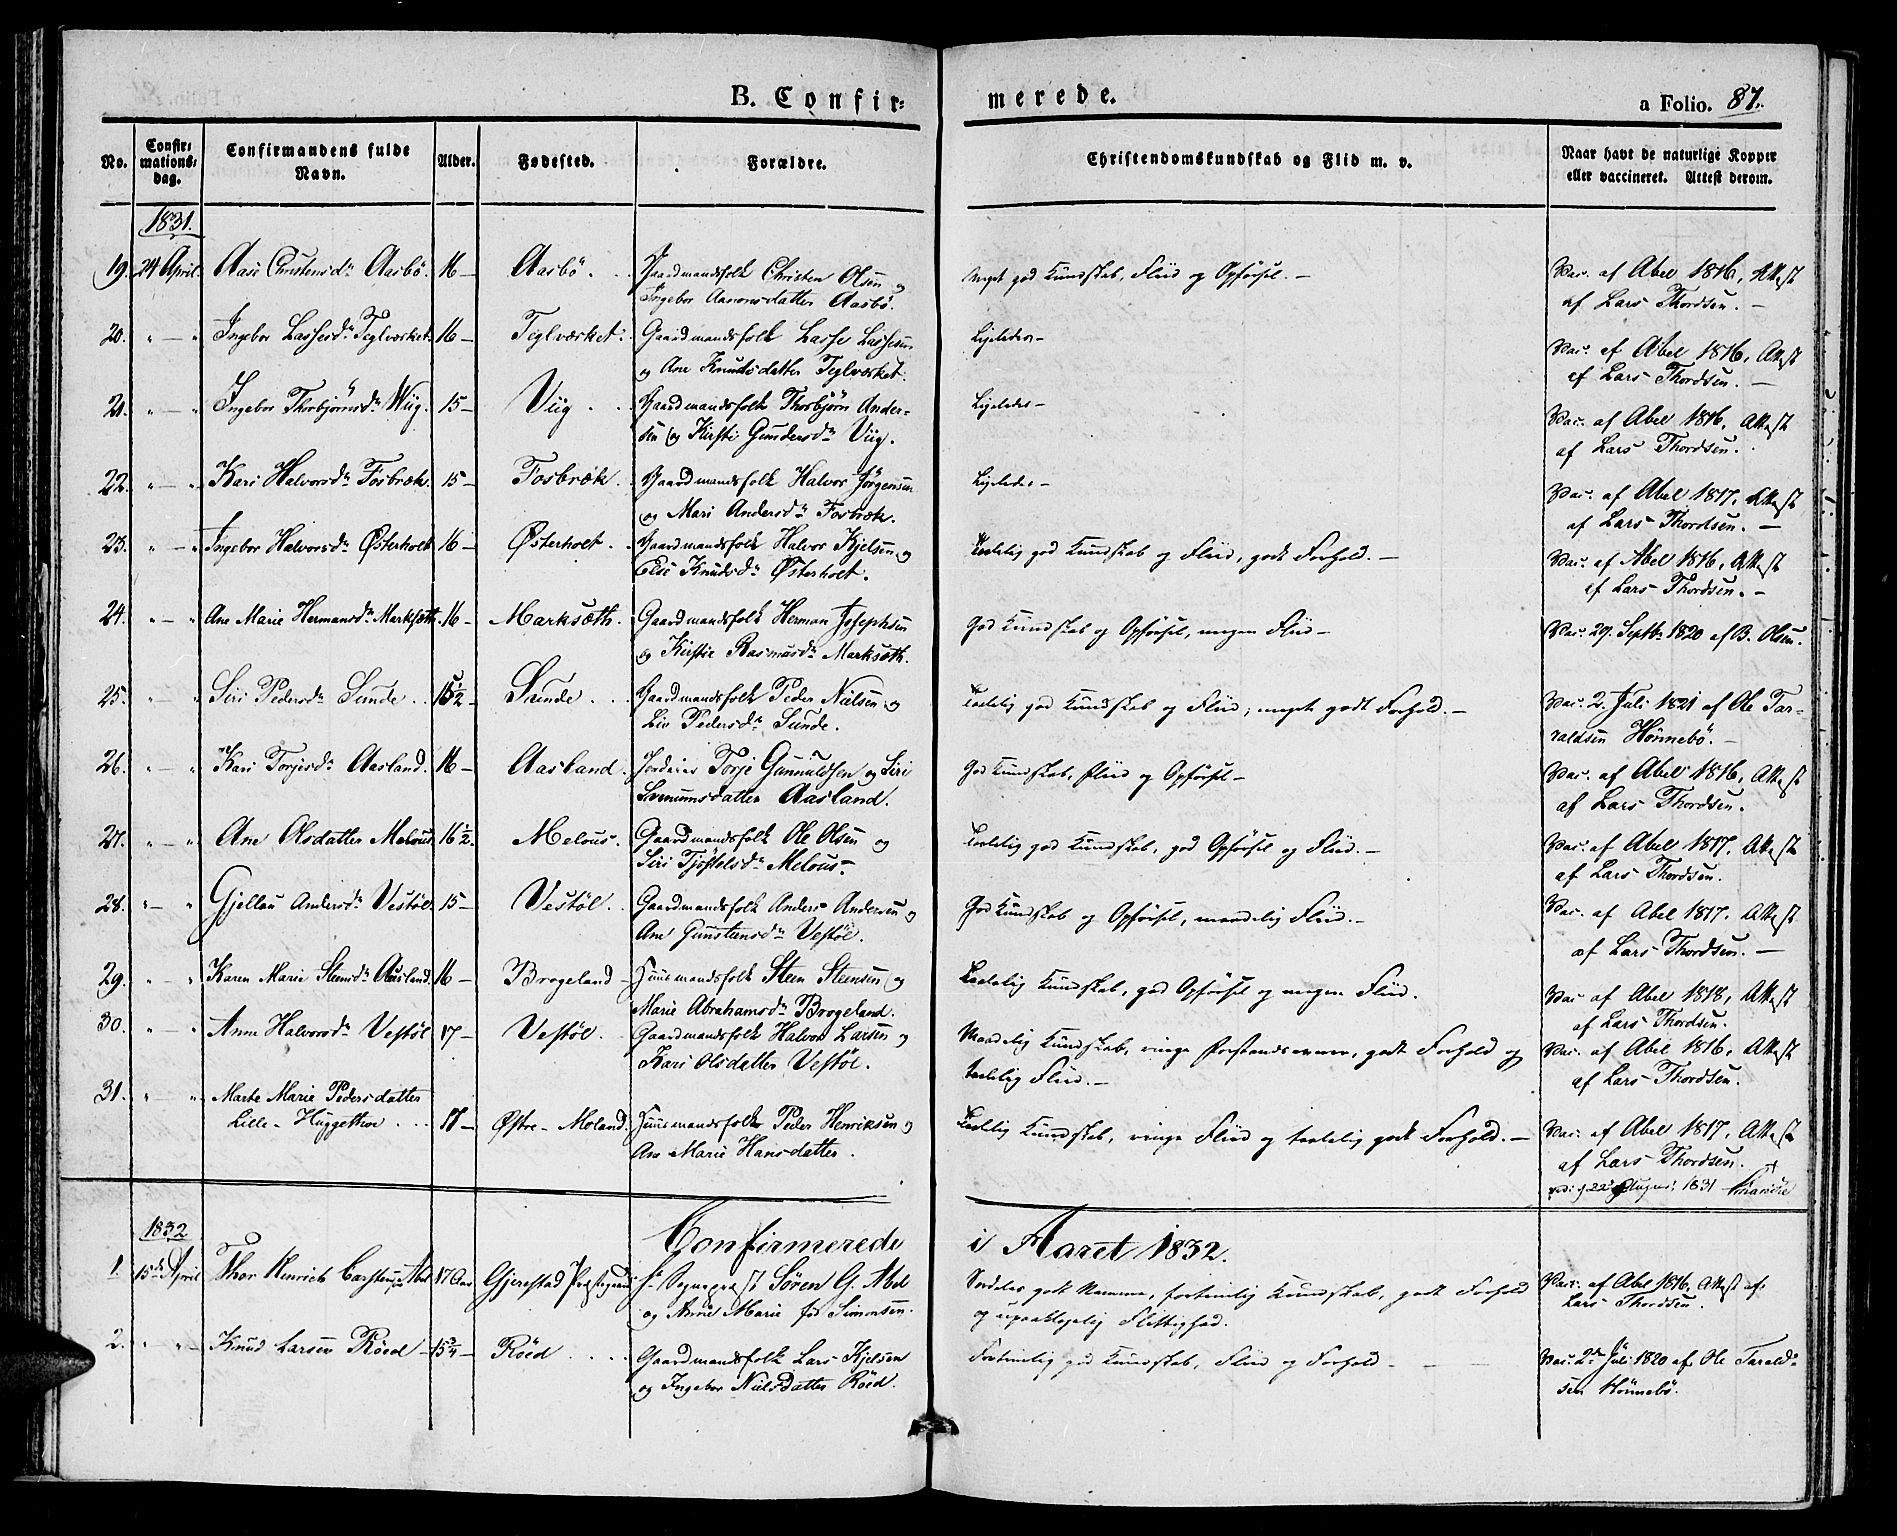 B. Confir-
merede.
a Folio. 87.
No.
Confir-
mations-
dag.
Confirmandens fulde
Navn.
Alder.
Fødested.
Forældre.
Christendomskundskab og Flid m. v.
Naar havt de naturlige Kopper
eller vaccineret. Attest derom.
1831.
19. 24 April. Aase Christensdr Aasbö. 16 - Aasbö. Gaardmandsfolk Christen Olsen og
Ingebor Aanonsdatter Aasbö.
Meget god Kundskab, Fliid og Opførsel. -
Vac. af Abel 1816, Attest
af Lars Thordsen. -
20. " - " Ingebor Lassesdr Teglværket. 16 - Teglværket. Gaardmandsfolk Lasse Lassesen
og Ane Knudsdatter Teglværket.
Ligeledes -
Vac. af Abel 1816, Attest
af Lars Thordsen. -
21. " - " Ingebor Thorbjörnsdr Wiig. 15 - Viig. Gaardmandsfolk Thorbjörn Ander-
sen og Kirsti Gundersdr Viig.
Ligeledes -
Vac. af Abel 1816, Attest
af Lars Thordsen.
22. " - " Kari Halvorsdr Fosbræk. 15 - Fosbræk. Gaardmandsfolk Halvor Jörgensen
og Mari Andersdr Fosbræk.
Ligeledes -
Vac. af Abel 1817, Attest
af Lars Thordsen. -
23. " - " Ingebor Halvorsdr Østerholt 16 - Østerholt. Gaardmandsfolk Halvor Kjelsen og
Else Knudsdr Østerholt.
Taalelig god Kundskab og Fliid, godt Forhold. -
Vac. af Abel 1816, Attest
af Lars Thordsen. -
24. " - " Ane Marie Hermansdr Marksæth. 16 - Marksæth. Gaardmandsfolk Herman Josephsen
og Kirstie Rasmusdr Marksæth.
God Kundskab og Opførsel, megen Fliid -
Vac. 29. Septbr 1820 af B. Olsen.
25. " - " Siri Pedersdr Sunde 15 1/2 - Sunde Gaardmandsfolk Peder Nielsen og
Liv Pedersdr Sunde.
Taalelig god Kundskab og Fliid, meget godt Forhold. -
Vac. 2. Juli 1821 af Ole Tar-
valdsen Hönnebö. -
26. " - " Kari Torjesdr Aasland. 16 - Aasland. Torje Gunnuldsen og Siri
Aasland.
God Kundskab, Fliid og Opførsel -
Vac. af Abel 1816, Attest
af Lars Thordsen.
27. " - " Ane Olsdatter Melous. 16 1/2. Melous. Gaardmandsfolk Ole Olsen og
Siri Tjöstelsdr Melous.
Taalelig god Kundskab, god Opførsel og Fliid. -
Vac. af Abel 1817. Attest
af Lars Thordsen.
28. " - " Gjellau Andersdr Vestöl. 15 - Vestöl. Gaardmandsfolk Anders Andersen og
Ane Gunsteensdr Vestöl.
God Kundskab og Opførsel, maadelig Fliid. -
Vac. af Abel 1817. Attest
af Lars Thordsen. -
29. " Karen Marie Steensdr Aasland. 16 - Brogeland - Huusmandsfolk Steen Steensen og
Marie Abrahamsdr Brogeland.
Taalelig Kundskab, god Opførsel og megen Fliid.
Vac af Abel 1818, Attest
af Lars Thordsen.
30. " " Anne Halvorsdr Vestöl 17 - Vestöl. Gaardmandsfolk Halvor Larsen og
Kari Olsdatter Vestöl.
Maadelig Kundskab, ringe Forstandsevner, godt Forhold og
taalelig Fliid. -
Vac. af Abel 1816, Attest
af Lars Thordsen.
31. " - " Marte Marie Pedersdatter
Lille-Huggethoe 17 - Østre-Moland. Huusmandsfolk Peder Henriksen og
Ane Marie Hansdatter.
Taalelig Kundskab, ringe Fliid og taalelig godt Forhold. -
Vac. af Abel 1817, Attest
af Lars Thordsen.
22 August 1831
1832
Confirmerede
i Aaret 1832.
1. 15de April Thor Henrich Carstensen Abel 17 Aar Gjerestad Præstegaard Hr Sognepræst Sören G. Abel
og Anne Marie fød Simonsen.
Særdeles godt Nemme, fortrinlig Kundskab, godt Forhold
og upaaklagelig Flittighed.
Vac. af Abel 1816, Attest af.
Lars Thordsen.
2. " " - Knud Larsen Röed - 15 3/4 - Röed Gaardmandsfolk Lars Kjelsen
og Ingebor Nielsdatter Röed.
Fortrinlig god Kundskab, Fliid og Forhold -
Vac. 2den Juli 1820 af Ole Tarald-
sen Hönnebö.